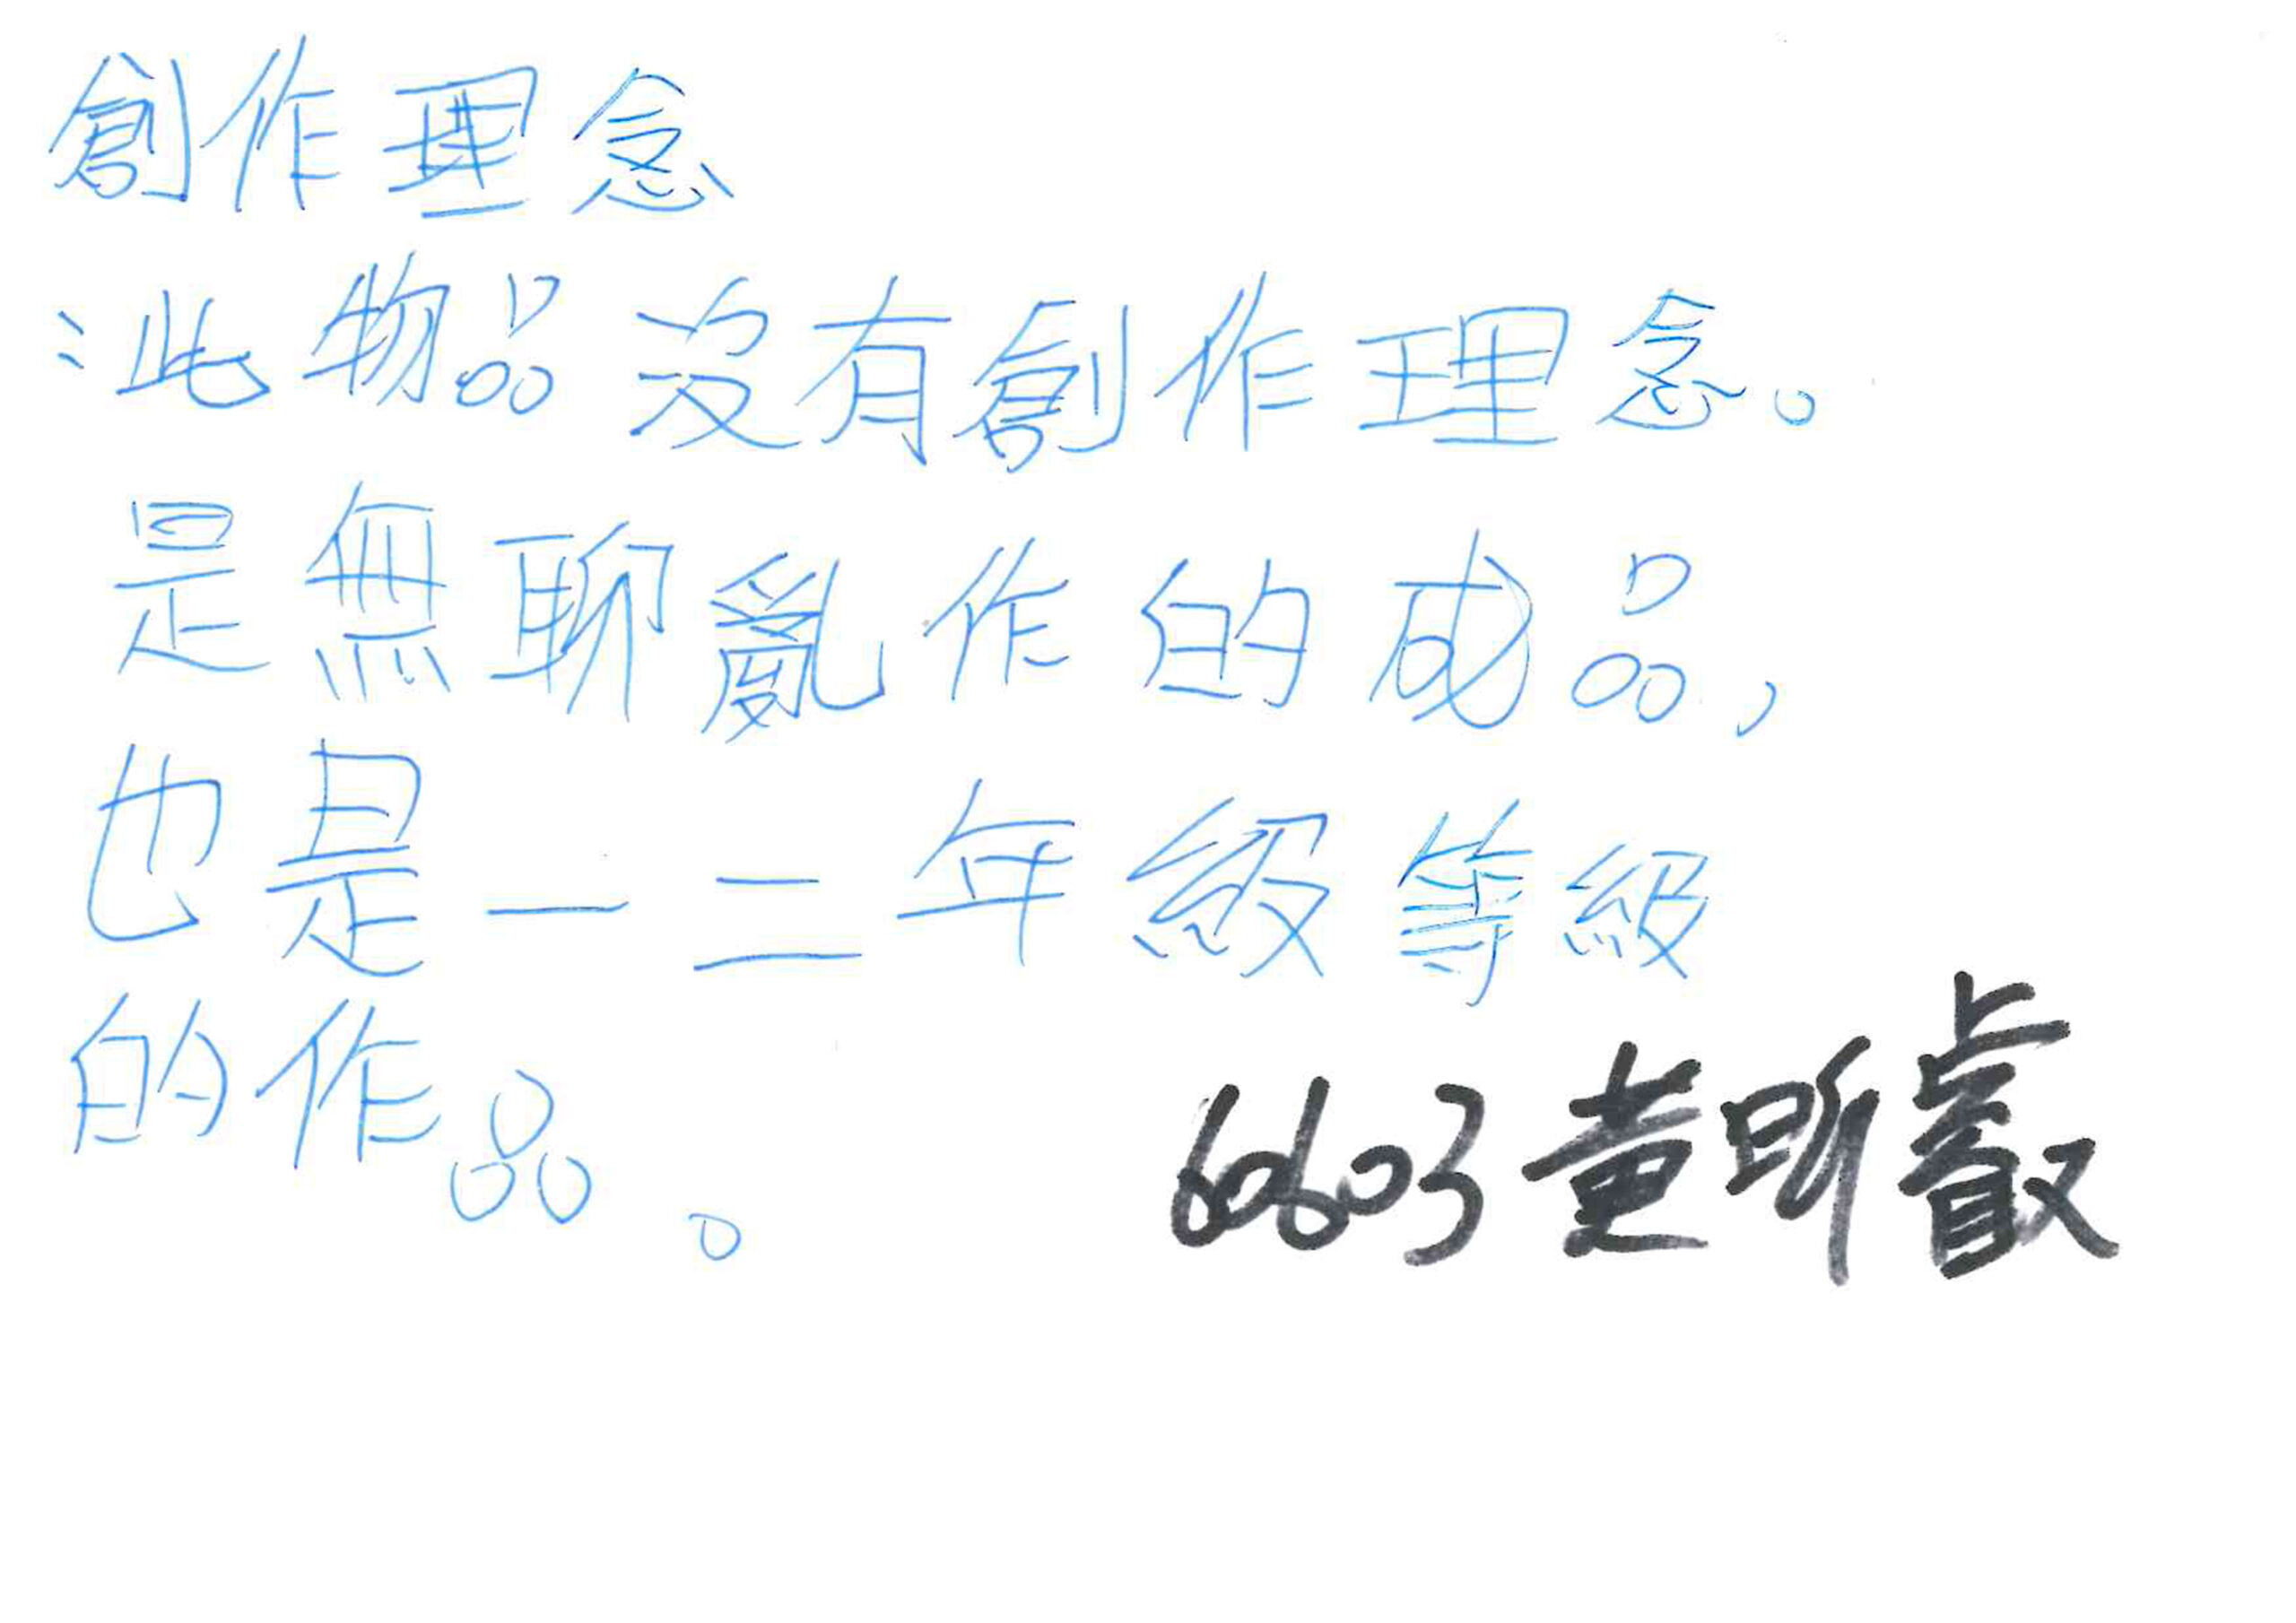 創作理念
：此物品沒有創作理念。
是無聊亂作的成品，
也是一二年級等級
的作品。
60603 黃昕叡